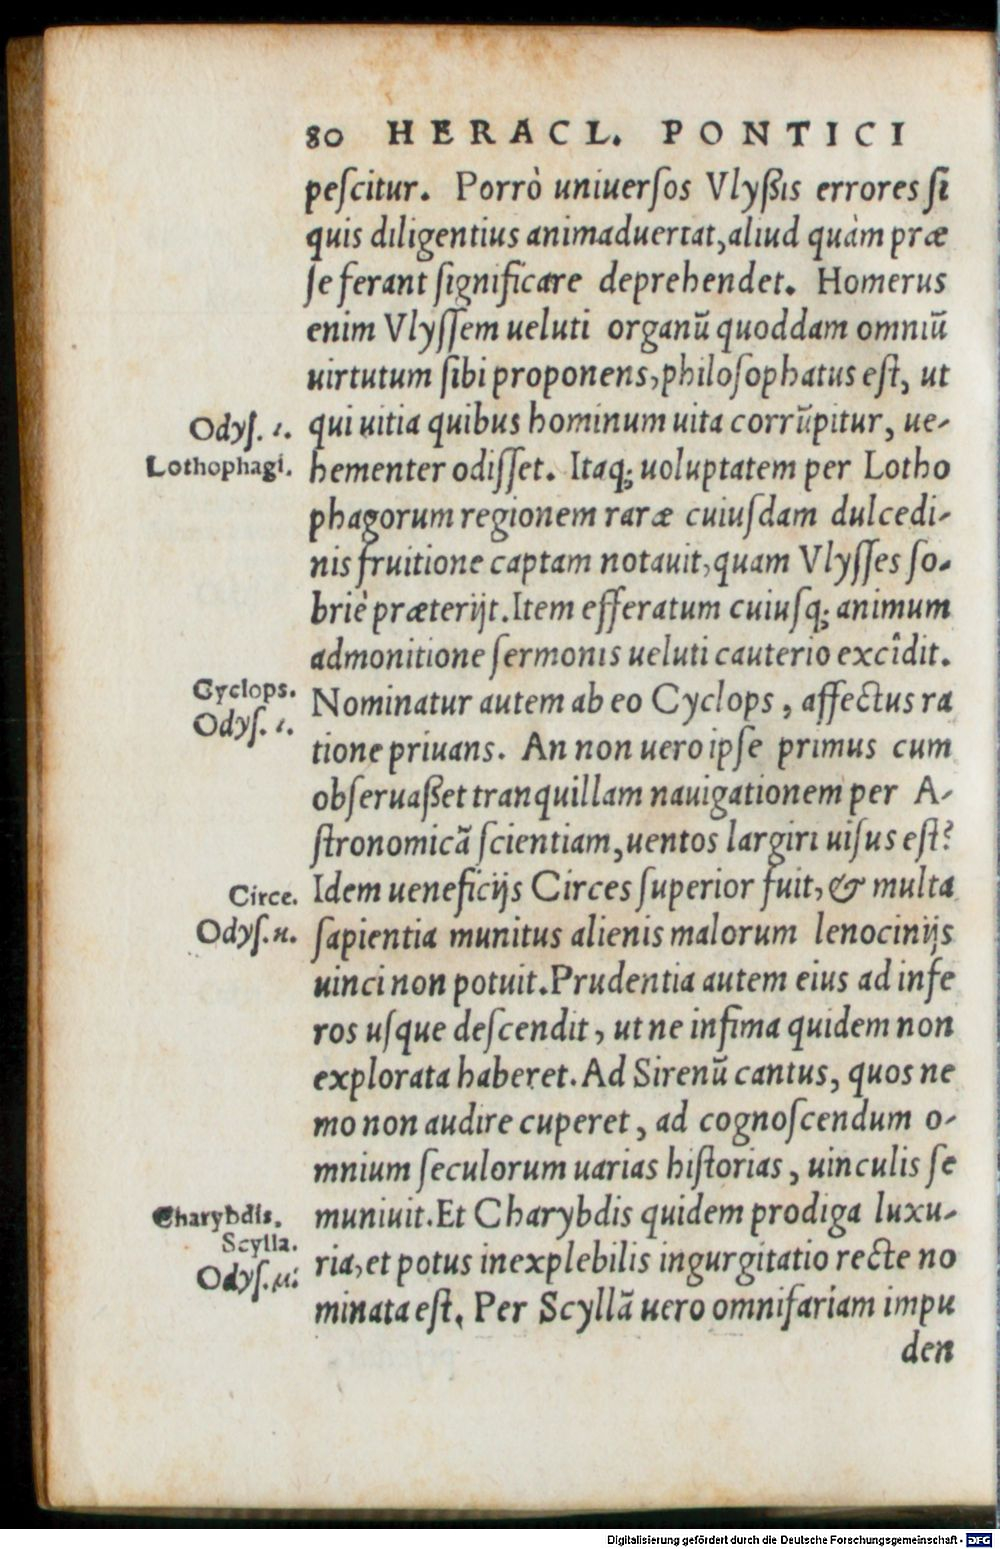 80 HERACL. PONTICI
peſcitur. Porrò uniuerſos Vlyßis errores ſi
quis diligentius animaduertat, aliud quàm præ
ſe ferant ſignificare deprehendet. Homerus
enim Vlyſſem ueluti organũ quoddam omniũ
uirtutum ſibi proponens, philoſophatus eſt, ut
Odyſ. ι.
qui uitia quibus hominum uita corrũpitur, ue-
Lothophagi.
hementer odiſſet. Itaq; uoluptatem per Lotho
phagorum regionem raræ cuiuſdam dulcedi-
nis fruitione captam notauit, quam Vlyſſes ſo-
briè præterijt. Item efferatum cuiuſq; animum
admonitione ſermonis ueluti cauterio excîdit.
Cyclops.
Nominatur autem ab eo Cyclops, affectus ra
Odyſ. ι.
tione priuans. An non uero ipſe primus cum
obſeruaßet tranquillam nauigationem per A-
ſtronomicã ſcientiam, uentos largiri uiſus eſt?
Circe.
Idem ueneficijs Circes ſuperior fuit, & multa
Odyſ. κ.
ſapientia munitus alienis malorum lenocinijs
uinci non potuit. Prudentia autem eius ad infe
ros uſque deſcendit, ut ne infima quidem non
explorata haberet. Ad Sirenũ cantus, quos ne
mo non audire cuperet, ad cognoſcendum o-
mnium ſeculorum uarias hiſtorias, uinculis ſe
Charybdis.
muniuit. Et Charybdis quidem prodiga luxu-
Scylla.
ria, et potus inexplebilis ingurgitatio recte no
Odyſ. μ.
minata eſt. Per Scyllã uero omnifariam impu
den
Digitalisierung gefördert durch die Deutsche Forschungsgemeinschaft - DFG